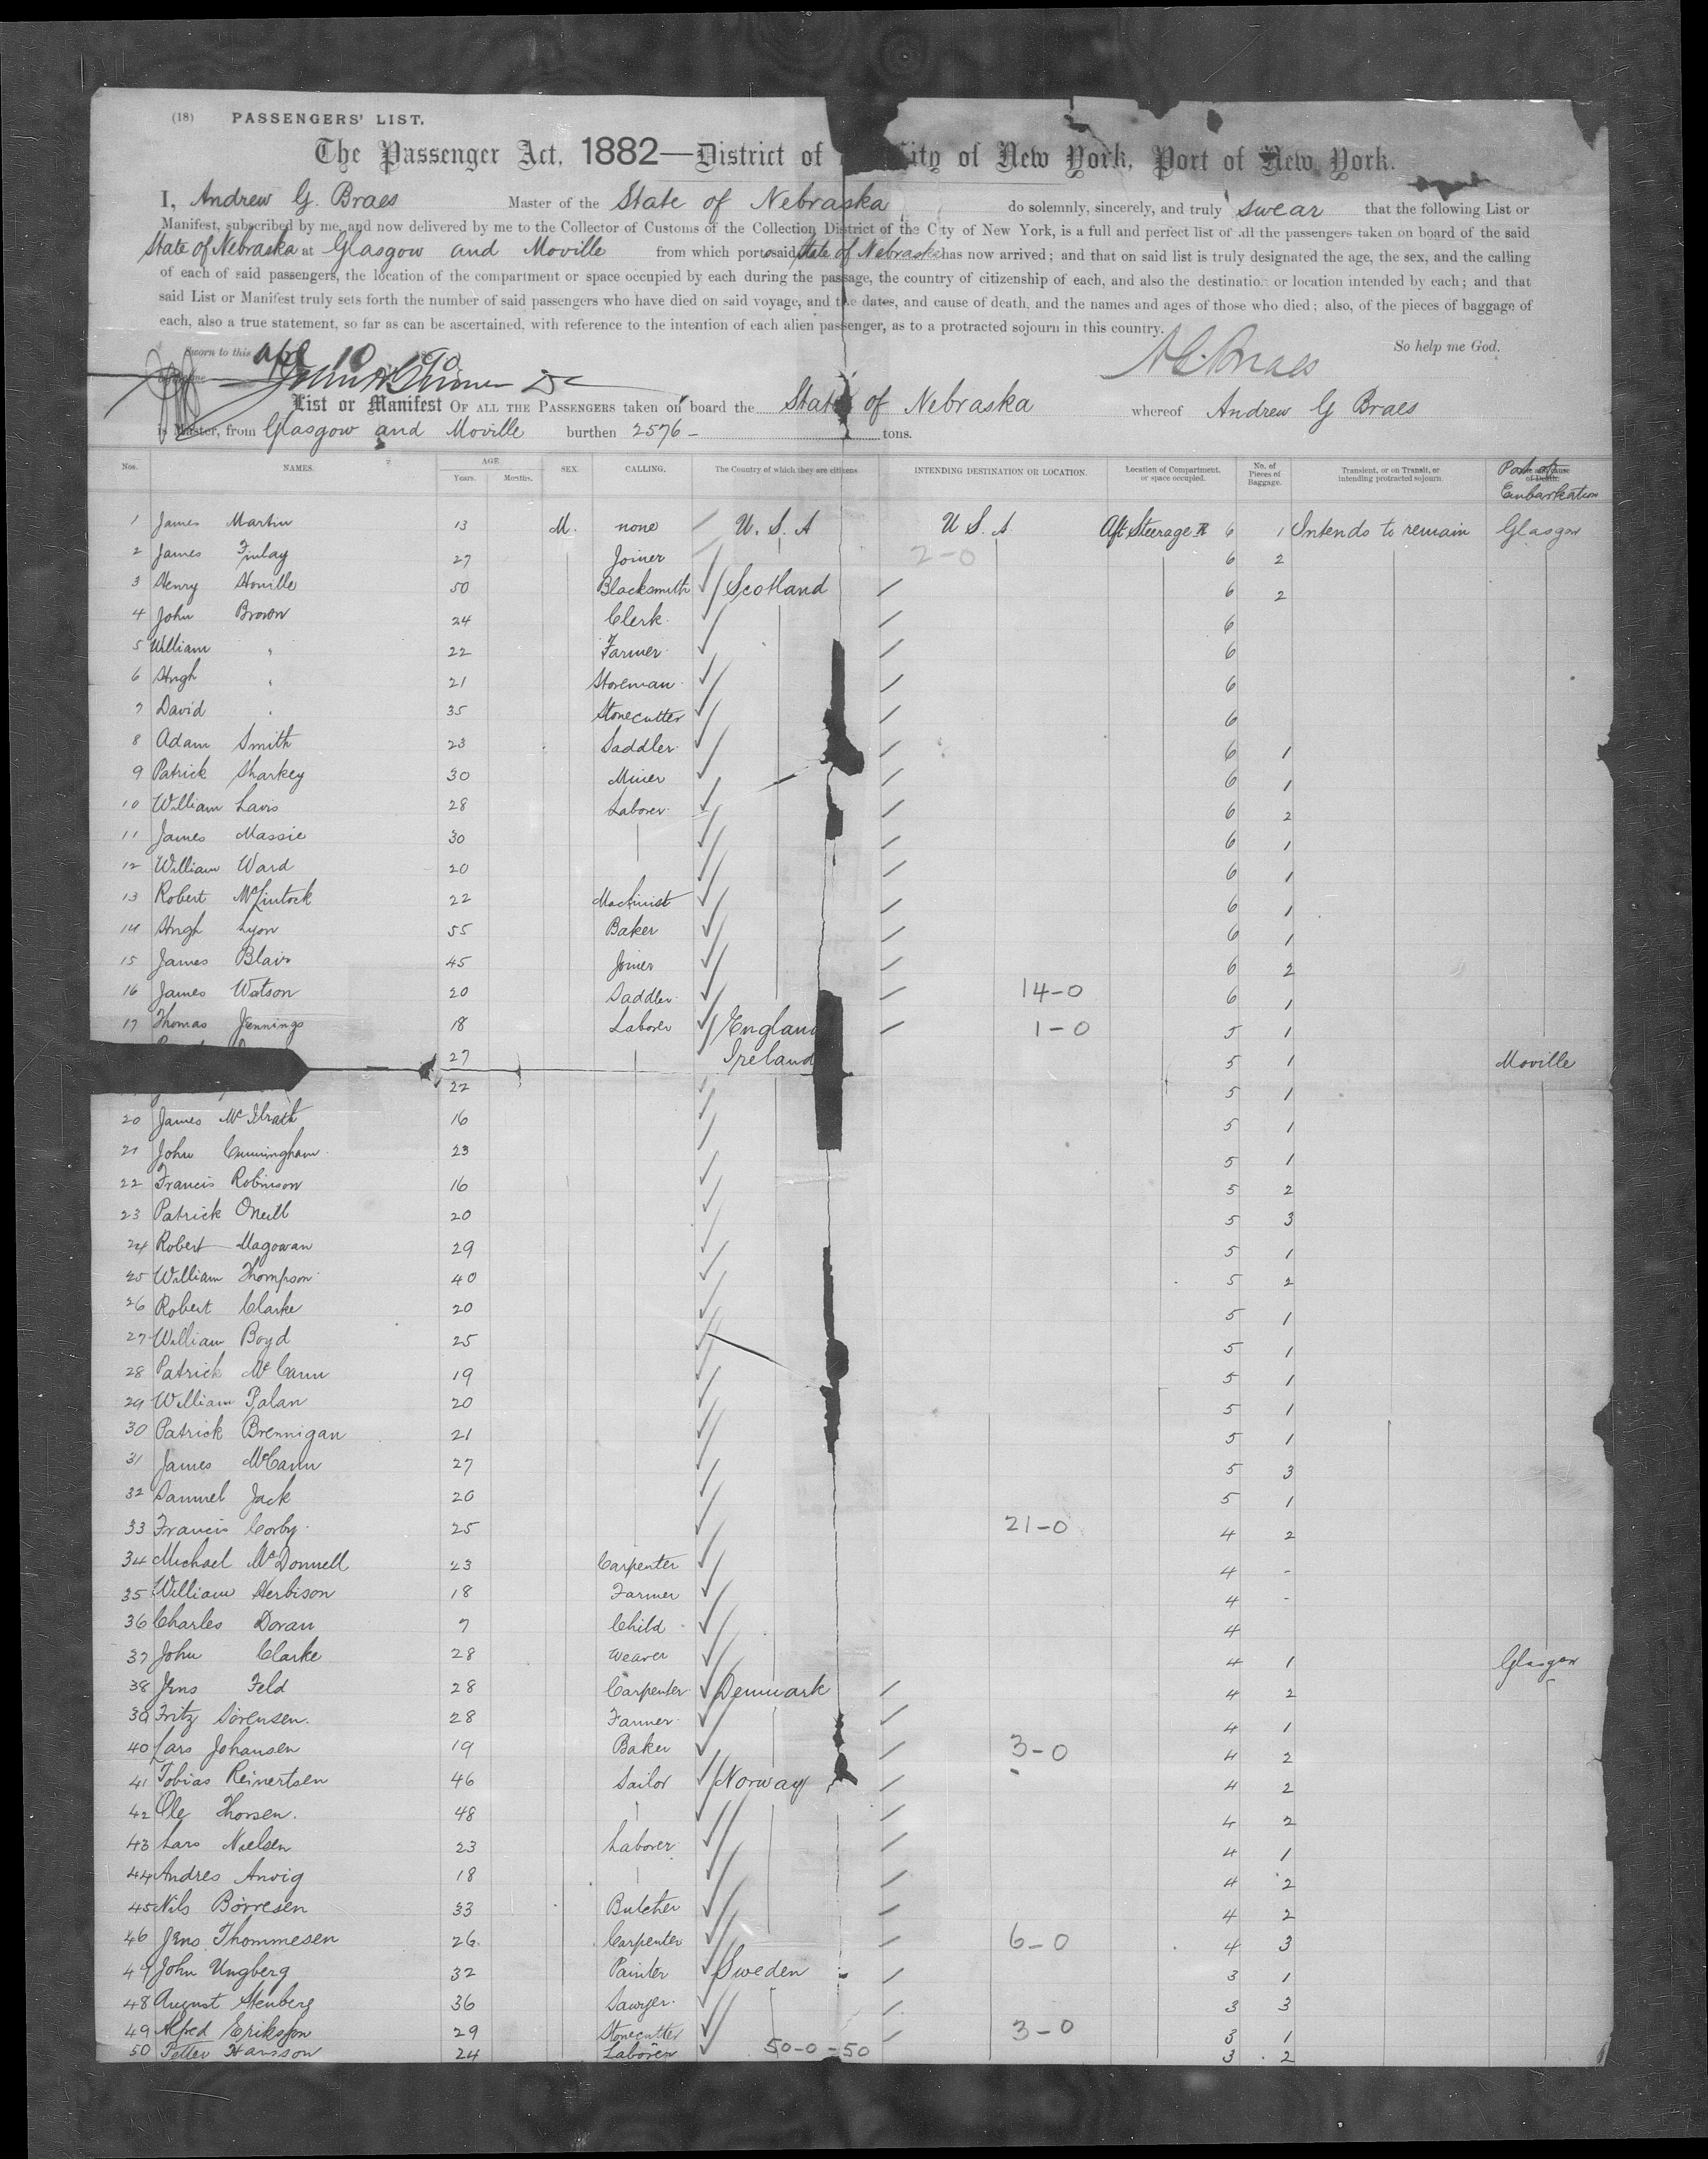 (18) PASSENGERS' LIST.
The Passenger Act, 1882—District of City of New York, Port of New York.
I, Andrew G. Braes Master of the State of Nebraska do solemnly, sincerely, and truly swear that the following List or
Manifest, subscribed by me, and now delivered by me to the Collector of Customs of the Collection District of the City of New York, is a full and perfect list of all the passengers taken on board of the said
State of Nebraska at Glasgow and Moville from which port said State of Nebraska has now arrived; and that on said list is truly designated the age, the sex, and the calling
of each of said passengers, the location of the compartment or space occupied by each during the passage, the country of citizenship of each, and also the destination or location intended by each; and that
said List or Manifest truly sets forth the number of said passengers who have died on said voyage, and the dates, and cause of death, and the names and ages of those who died; also, of the pieces of baggage of
each, also a true statement, so far as can be ascertained, with reference to the intention of each alien passenger, as to a protracted sojourn in this country.
So help me God.
Sworn to this Apl 10 1890
A G. Braes
List or Manifest OF ALL THE PASSENGERS taken on board the State of Nebraska whereof Andrew G Braes
is Master, from Glasgow and Moville burthen 2576 - tons.
Nos. NAMES. AGE Years. Months. SEX. CALLING. The Country of which they are citizens INTENDING DESTINATION OR LOCATION. Location of Compartment, or space occupied. No. of Pieces of Baggage. Transient, or on Transit, or intending protracted sojourn. Port of Embarkation
1 James Martin 13 M. none U. S. A U S. A Aft Steerage 6 1 Intends to remain Glasgow
2 James Finlay 27 Joiner 2-0 6 2
3 Henry 50 Blacksmith Scotland 6 2
4 John Brown 24 Clerk 6
5 William " 22 Farmer 6
6 Hugh " 21 Storeman 6
7 David " 35 Stonecutter 6
8 Adam Smith 23 Saddler 6 1
9 Patrick Sharkey 30 Miner 6 1
10 William 28 Laborer 6 2
11 James Massie 30 6 1
12 William Ward 20 6 1
13 Robert McLintock 22 Machinist 6 1
14 Hugh Lyon 55 Baker 6 1
15 James Blair 45 Joiner 6 2
16 James Watson 20 Saddler 14-0 6 1
17 Thomas Jennings 18 Laborer England 1-0 5 1
27 Ireland 5 1 Moville
22 5 1
20 James McIlrath 16 5 1
21 John Cunningham 23 5 1
22 Francis Robinson 16 5 2
23 Patrick ONeill 20 5 3
24 Robert Magowan 29 5 1
25 William Thompson 40 5 2
26 Robert Clarke 20 5 1
27 William Boyd 25 5 1
28 Patrick McCann 19 5 1
29 William 20 5 1
30 Patrick Brennigan 21 5 1
31 James McCann 27 5 3
32 Samuel Jack 20 5 1
33 Francis Corby 25 21-0 4 2
34 Michael McDonnell 23 Carpenter 4 -
35 William Herbison 18 Farmer 4 -
36 Charles Doran 7 Child 4
37 John Clarke 28 Weaver 4 1 Glasgow
38 Jens Feld 28 Carpenter Denmark 4 2
39 Fritz Sörensen. 28 Farmer 4 1
40 Lars Johansen 19 Baker 3-0 4 2
41 Tobias Reinertsen 46 Sailor Norway 4 2
42 Ole Thorsen. 48 4 2
43 Lars Nielsen 23 Laborer 4 1
44 Andres Anvig 18 4 2
45 Nils Börresen 33 Butcher 4 2
46 Jens Thommesen 26 Carpenter 6-0 4 3
47 John Ungberg 32 Painter Sweden 3 1
48 August Stenberg 36 Sawyer 3 3
49 Alfred Eriksson 29 Stonecutter 3-0 3 1
50 Petter Hansson 24 Laborer 50-0-50 3 2